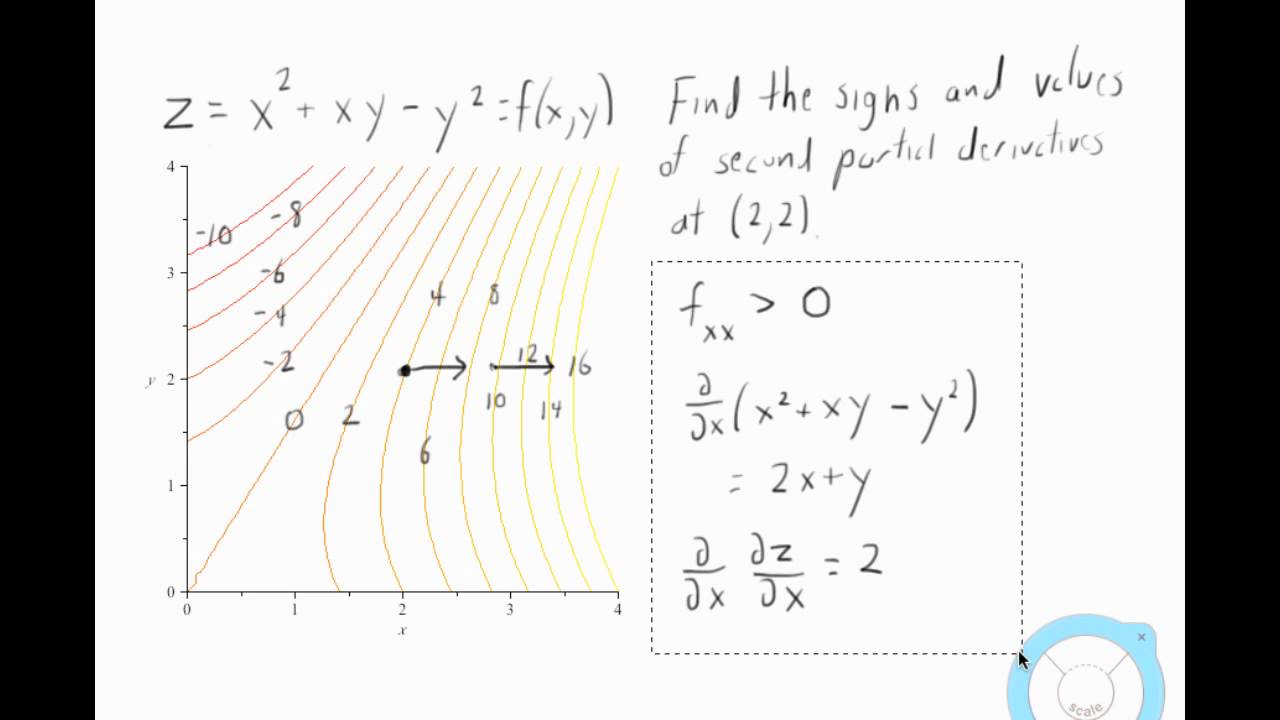 z = x² + xy - y² = f(x,y)
Find the signs and values
of second partial derivatives
at (2,2).
4
3
y 2
1
0
0 1 2 3 4
x
-10
-8
-6
-4
-2
0
2
4
6
8
10
12
14
16
f_xx > 0
∂/∂x (x² + xy - y²)
= 2x+y
∂/∂x ∂z/∂x = 2
×
scale